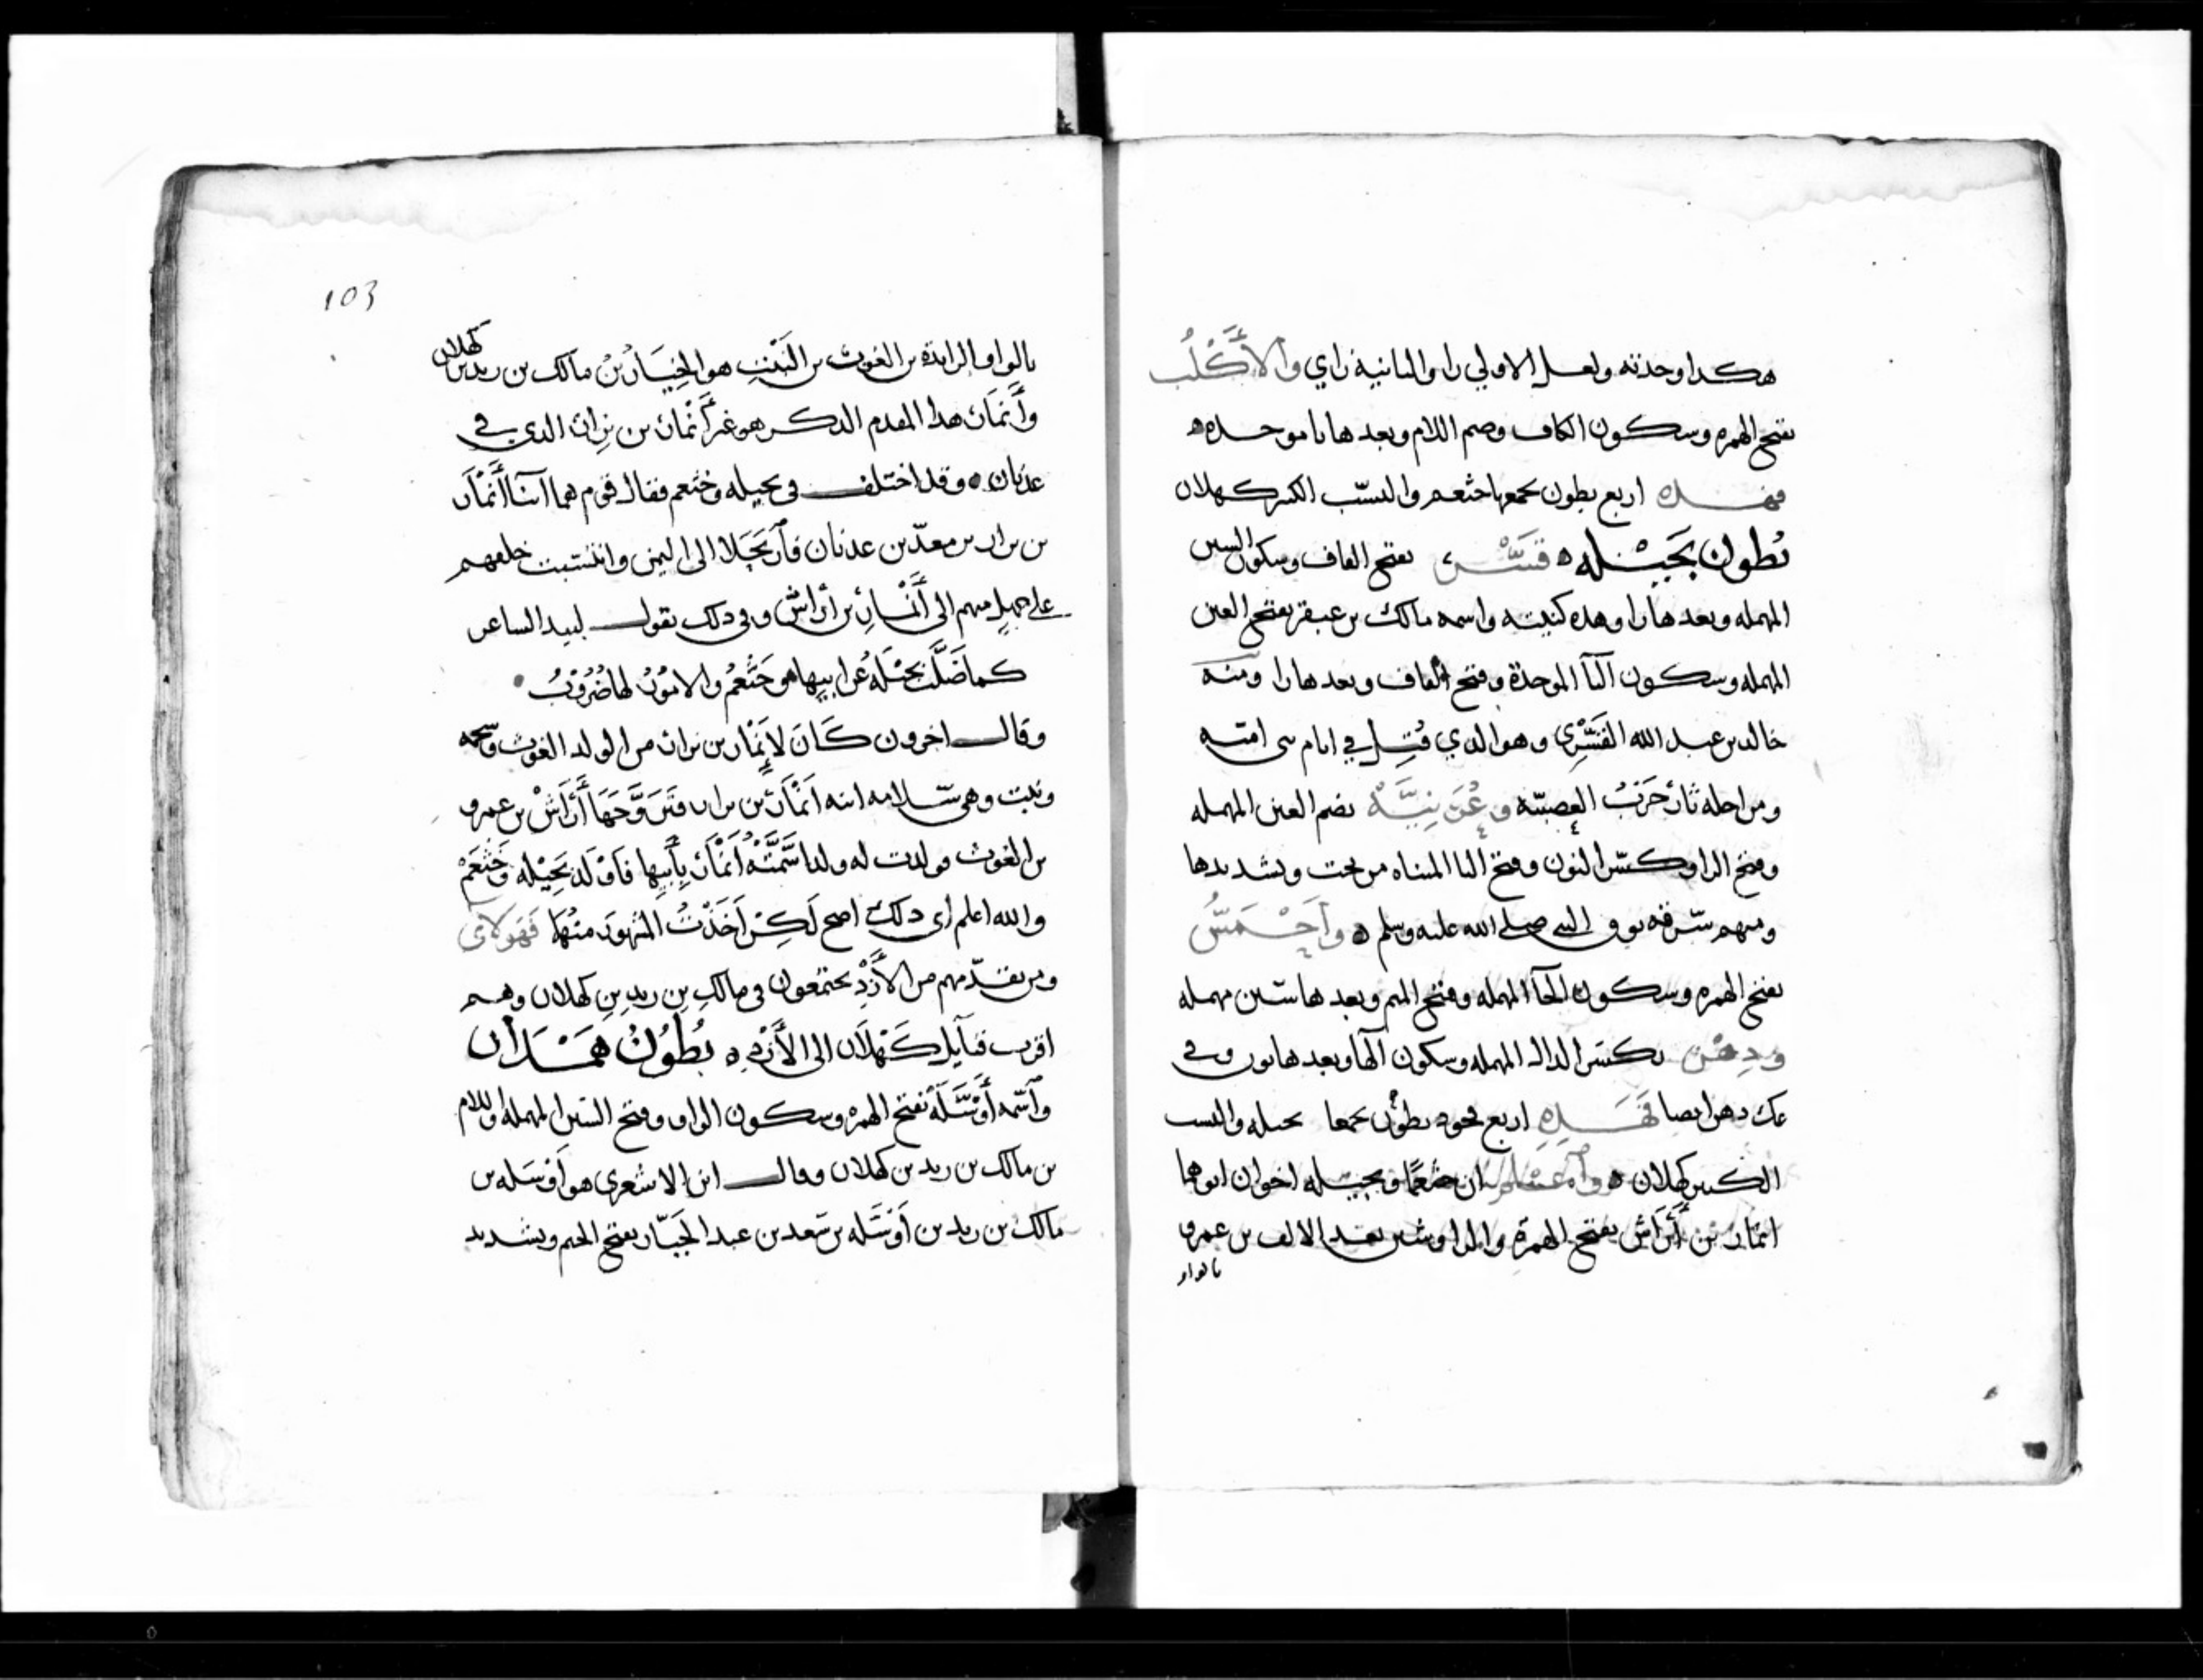 هكدا وحدته ولعل الاولي را والثانية زاي والأَكْلُب
بفتح الهمزه وسكون الكاف وضم اللام وبعدها با موحده
فهذه اربع بطون يجمعها خثعم والنسب الكبير كهلان
بُطون بَجيْله قَسْر، بفتح القاف وسكون السين
المهمله وبعدها را وهذه كنيته واسمه مالك بن عبقر بفتح العين
المهمله وسكون البآ الموحدة وفتح القاف وبعدها را ومنه
خالد بن عبد الله القَسْرِي وهو الذي قُتِل في ايام بني اميّه
ومن اجله ثار حَرْبُ العصبيّه وعُرَنِيَّة بضم العين المهمله
وفتح الرا وكسر النون وفتح اليا المثناه من تحت وتشديدها
ومنهم النبي صلى الله عليه وسلم وأحْمَسُ
بفتح الهمزه وسكون الحآ المهمله وفتح الميم وبعدها سين مهمله
ودِهْن بكسر الدال المهمله وسكون الها وبعدها نون وفي
عك دهن ايضا فَهَذِهِ اربع بطون يجمعها بجيله والنسب
الكبير كهلان واعلم ان خثعمًا وبجيله اخوان ابوهما
انمار بن أَرَاش بفتح الهمزة والرا وشين بعد الالف بن عمرو
بالواو
103
بالواو الزايدة بن الغوث بن النَبْتِ هو الخِيَارُ بنُ مالك بن زيد بن كهلان
وأَنمَار هذا المقدم الذكر هو غير أَنْمار بن نِزار الذي في
عدنان وقد اختلف في بجيله وخثعم فقال قوم هما ابنا أَنْمَار
بن نزار بن معدّ بن عدنان فارتحلا الى اليمن وانتسبت خلعهم
على جهل منهم الى أَنْمارِ بن أراش وفي ذلك يقول لبيد الشاعر
كما ضَلَّت بجيْلَهُ عن ابيها وخَثْعَمُ والامُوْرُ لها ضُرُوْبُ
وقال اخرون كَانَ لأَنْمار بن نزار من الولد الغوث
وهي سلامه ابنه انمَار بن نزار فَتَزَوَّجَهَا أَرَاشْ بن عمرو
بن الغوث فولدت له ولدا سَمَّتْهُ أَنْمَار بِأَبيها فَاوْلَد بَجِيْله وخَثْعَمْ
والله اعلم اي ذلك اصح لَكِنْ اَخَذْتُ المشهورَ منها فَهَولاي
ومن تقدّمهم من الأَزْدِ يجتمعون في مالكِ بِن زيدِ بِن كهلان وهم
اقرب قبآيل كَهْلَان الى الأَزْد بُطُوْنُ هَمْدَان
وآسمه أَوْسَلَه بفتح الهمزه وسكون الواو وفتح السّين المهمله واللام
بن مالك بن زيد بن كهلان وقال ابن الاشعري هو اَوْسَله بن
مالك بن زيد بن اَوْسَله بن سَعد بن عبد الجَبّار بفتح الجيم وتشديد